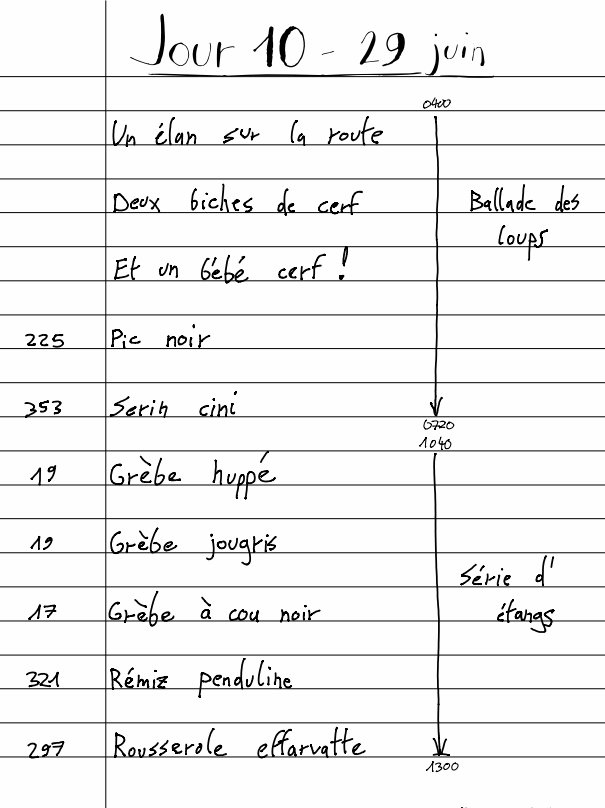 Jour 10 - 29 juin
0400
Un élan sur la route
Deux biches de cerf
Ballade des
loups
Et un bébé cerf !
225 Pic noir
353 Serin cini
0720
1040
19 Grèbe huppé
19 Grèbe jougris
Série d'
étangs
17 Grèbe à cou noir
321 Rémiz penduline
297 Rousserole effarvatte
1300